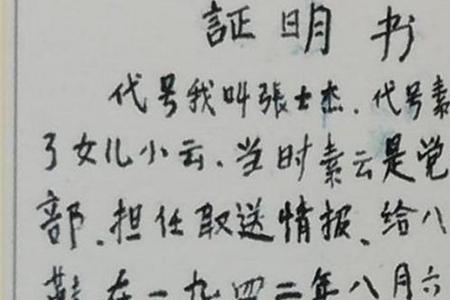 証明书
代号我叫張士杰.代号素
了女儿小云.当时素云是党
部.担任取送情报.给八
在一九四二年八月六